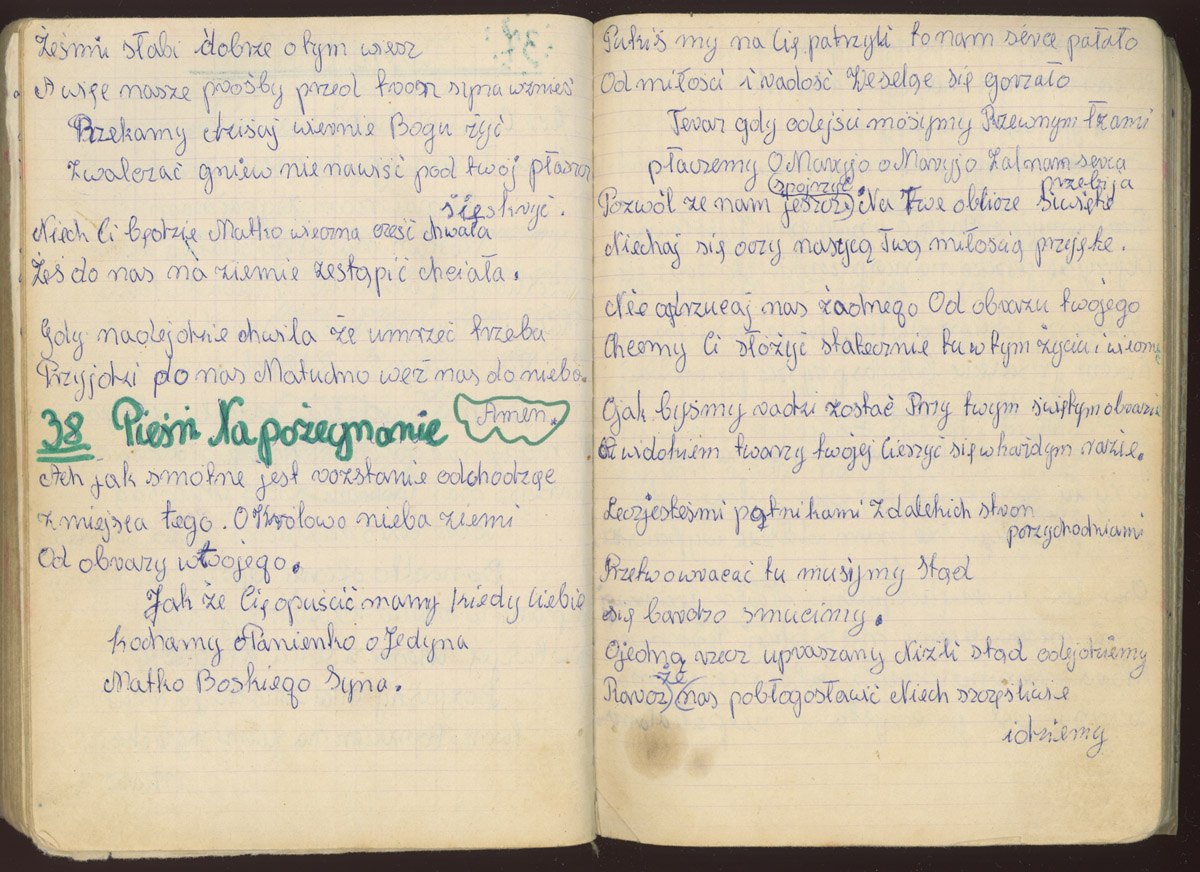 Żeśmy słabi dobrze o tym wiesz
A więc nasze prośby przed tron syna wznieś
Przekamy dzisiaj wiernie Bogu żyć
Zwalczać gniew nienawiść pod twój płaszcz
się skryć.
Niech Ci będzie Matko wieczna cześć chwała
Żeś do nas na ziemie zestąpić chciała.
Gdy nadejdzie chwila że umrzeć trzeba
Przyjdzi do nas Matuchno weź nas do nieba.
38 Pieśń Na pożegnanie Amen.
Ach jak smótne jest rozstanie odchodzęc
z miejsca tego. O Królowo nieba ziemi
Od obrazy wtwojego.
Jak że Cię opuścić mamy kiedy Ciebie
kochamy Panienko o Jedyna
Matko Boskiego Syna.
Pukiś my na Cię patrzyli to nam serce pałało
Od miłości i radość Weselge się gorzało
Teraz gdy odejści mósymy Rzewnym łzami
płaczemy O Maryjo o Maryjo Żal nam serca
przebija
spojrzyć
Pozwól ze nam jeszcz) Na Twe oblicze Siwięte
Niechaj się oczy nasycą Twą miłością przyjęte.
Nie odrzucaj nas żadnego Od obrazu twojego
Chcemy Ci słóżyć statecznie tu w tym życiu i wieczne
Ojak byśmy radzi zostać Przy twym świętym obrazie
Z widokiem twarzy twojej Cieszyć się w każdym razie.
Lecz jesteśmi pątnikami Z dalekich stron
porzychodniami
Przetwo wracać tu musijmy Stąd
się bardzo smucimy.
O jedną rzecz upraszany Niżli stąd odejdziemy
że
Raracz) (nas pobłogosławić Niech szczęśliwie
idziemy